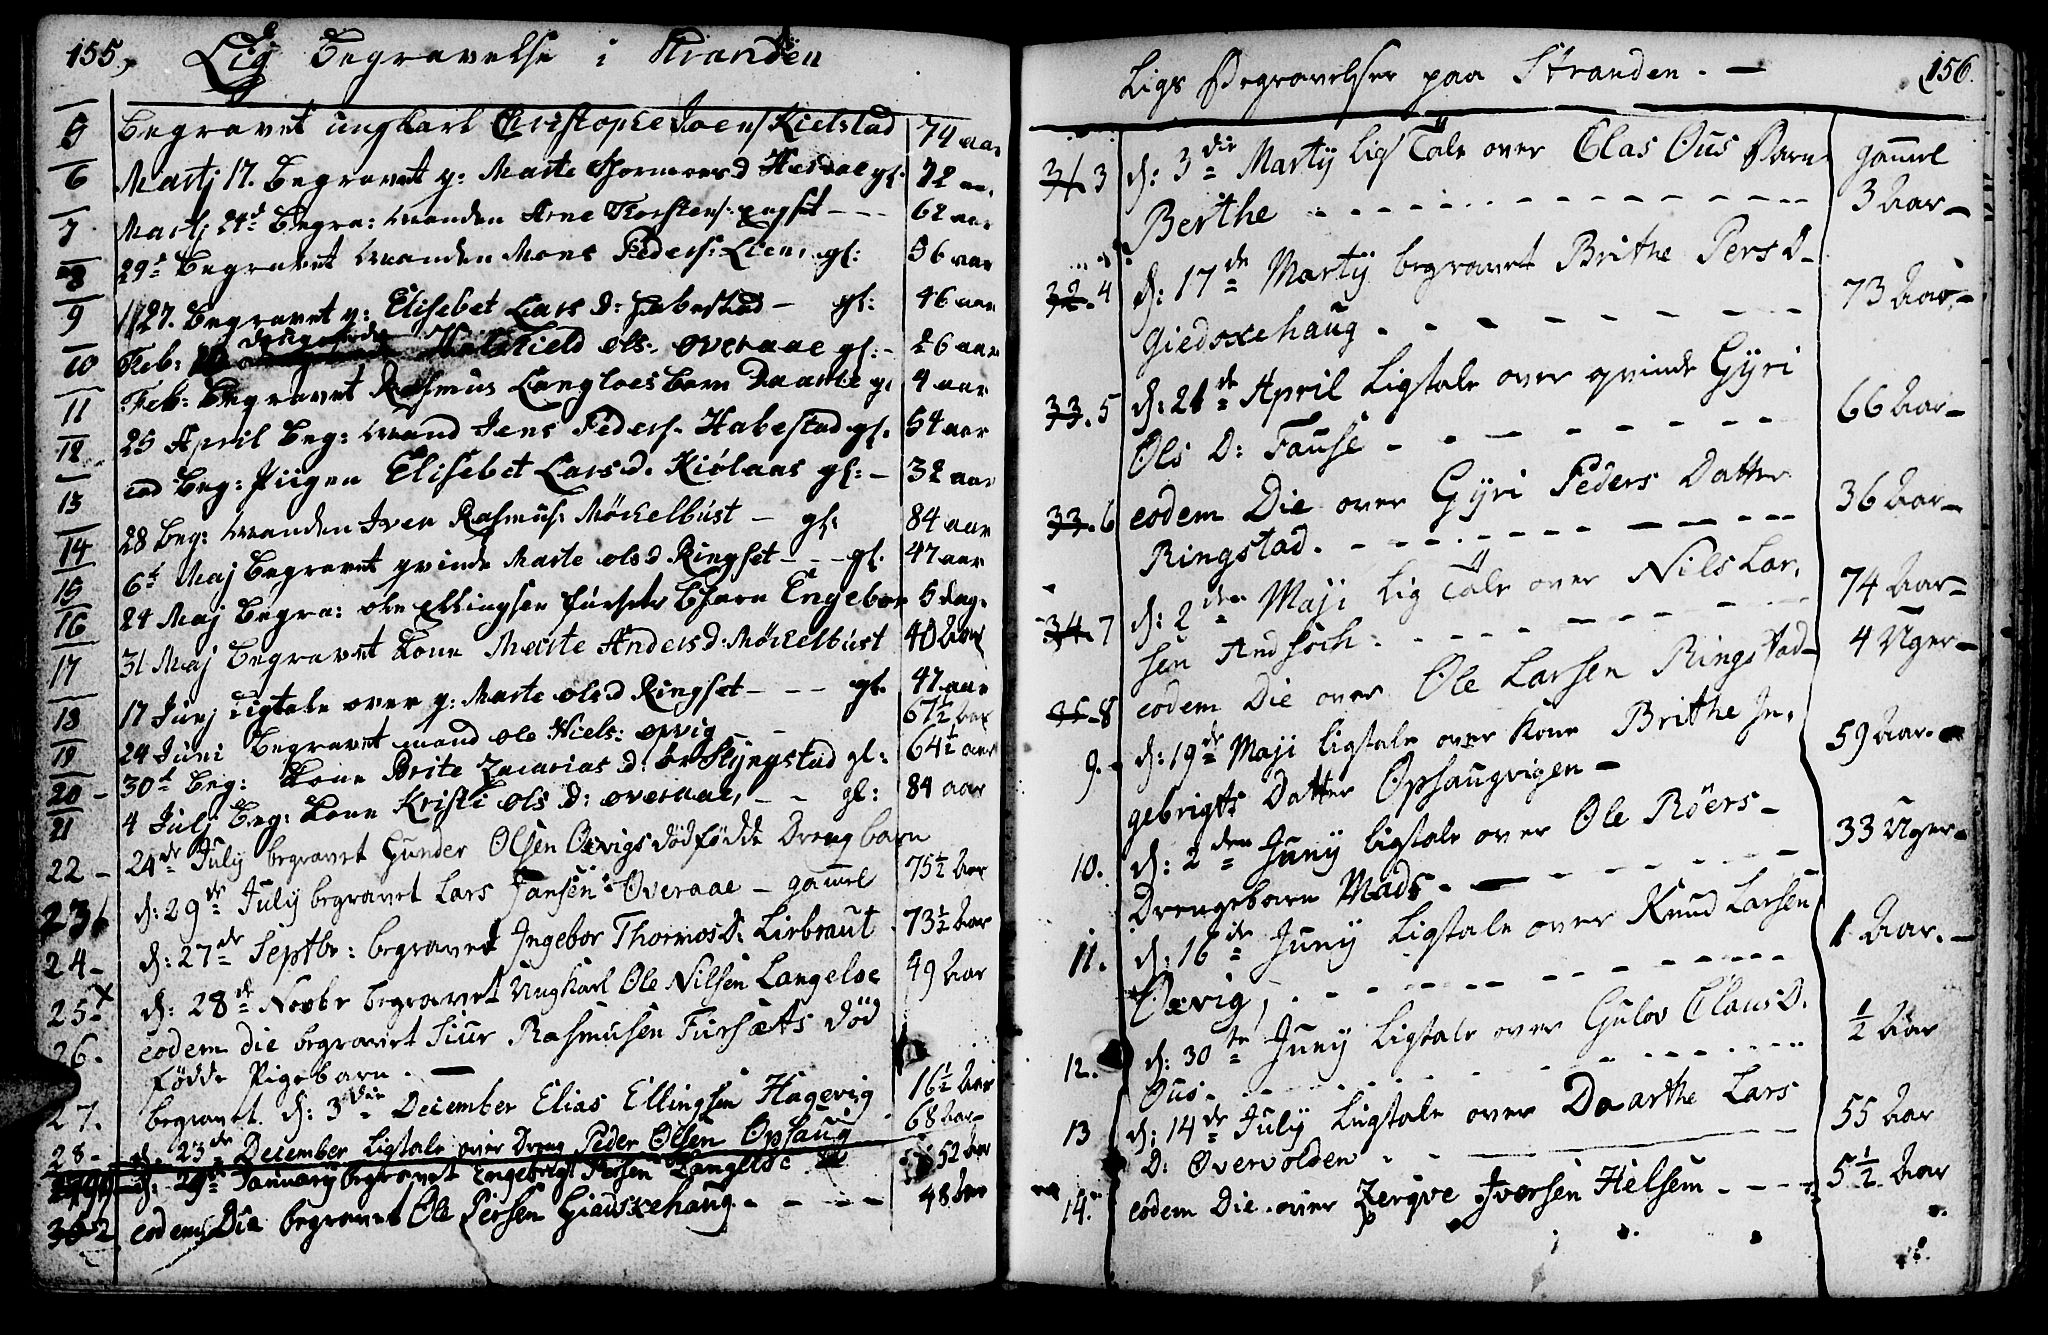 155,
Lig Begravelse i Stranden
5 Begravet ungkarl Christophe Joens Kielstad 74 aar
6 Martj 17. Begravet q: Marte Thormoesd Herdal gl: 72 aar
7 Martj 24d Begra: Manden Arne Thorstens: 62 aar
8 29d Begravet Manden Mons Peders: Lien, gl: 56 aar
9 27. Begravet q: Elisebet Lars D: Habestad — gl: 46 aar
10 Feb: ols. overaae gl: - 26 aar
11 Feb: Begravet Rasmus Langloes barn Daarte gl 4 aar
12 25 April Beg: Mand Jens Peders. Habestad gl. 54 aar
13 eod Beg: Piigen Elisebet Larsd. Kiölaas gl: - 32 aar
14 28 Beg: Manden Iver Rasmus: Möckelbust — gl: 84 aar
15 6t Maj Begravet qvinde Marte olsd Ringset - - - gl: 47 aar
16 24 Maj Begra: ole Ellingsen fursets Barn Engebor 5 dage
17 31 Maj Begravet Kone Marte Andersd: Möckelbust 40 Aar
18 17 Junj Ligtale over q: Marte olsd Ringset - - - gl. 47 aar
19 24 Juni Begravet mand ole Niels: opvig - - 67½ aar
20 - 30t Beg: Kone Brite Zacarias d: gl: 64½ aar
21 4 Julj Beg: Kone Kristi ols D: overaae, - - gl: 84 aar
22 - 24de July begravet Gunder Olsen Oevigs dödfödde Drengbarn
23 d: 29de July begravet Lars Jansen Overaae - gammel 75½ Aar
24 - d: 27de Septbr: begravet Ingebor Thormos D: Lirbraut 73½ Aar
25 x d: 28de Novbr begravet Ungkarl Ole Nilsen Langeloe 49 Aar
26. eodem die begravet Siur Rasmusen Fursæts död
födde Pigebarn. —
27. begravet. d: 3die December Elias Ellingsen Hagevig 16½ Aar
28 - d. 23de December Ligtale over Dreng Peder Olsen Opsaug 68 Aar
d: 29de January begravet Engebrigt Persen Langeloe 52 Aar
30 2 eodem Die begravet Ole Persen Giedskehaug - - - - 48 Aar
Ligs Begravelser paa Stranden. — 156.
31. 3 d: 3die Martÿ Lig Tale over Elas Ous Barn gammel
Berthe - - - - 3 Aar -
32. 4 d: 17de Martÿ begravet Brithe Pers D -
Giedskehaug. - - - - 73 Aar -
33. 5 d: 21de April Ligtale over qvinde Gÿri
Ols D: Fause - - - - 66 Aar -
33. 6 eodem Die over Gÿri Peders Datter
Ringstad. - - - - 36 Aar -
34. 7 d: 2den Maji Lig Tale over Nils Lar,
sen - - - - 74 Aar -
35 - 8 eodem Die over Ole Larsen Ringstad - 4 Uger -
9. - d: 19de Maji Ligtale over Kone Brithe In,
gebrigts Datter Opsaugvigen - 59 Aar. -
10. d: 2den Junÿ Ligtale over Ole Röers -
Drengebarn Mads. - - - 33 Uger -
11. d: 16de Junÿ Ligtale over Knud Larsen
Oxvig, - - - - 1 Aar. -
12. d: 30te Junÿ Ligtale over Gulov Claus D.
Ous. - - - - ½ Aar
13 d: 14de July Ligtale over Daarthe Lars
D: Overvolden. - - 55 Aar
14. eodem Die over Zerqve Iversen Helsem. - - - 5½ Aar